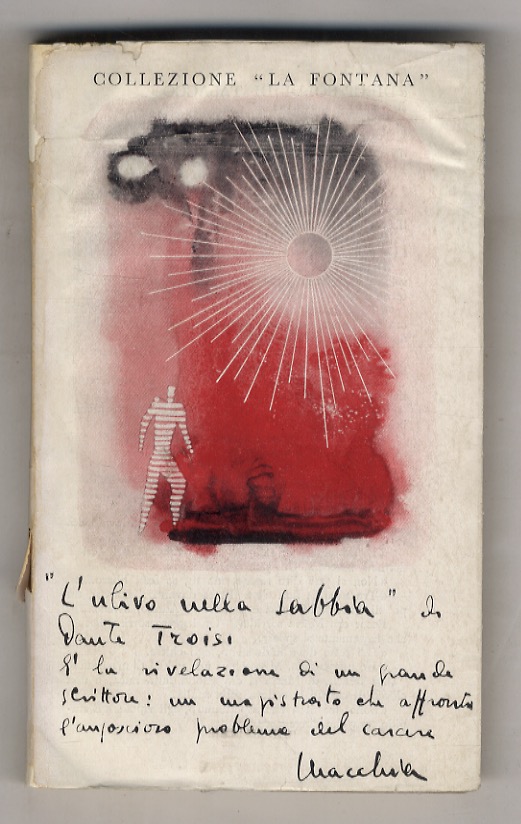 COLLEZIONE "LA FONTANA"
"L'ulivo nella sabbia" di
Dante Troisi
E' la rivelazione di un grande
scrittore: un magistrato che affronta
l'angoscioso problema del carcere
Macchia